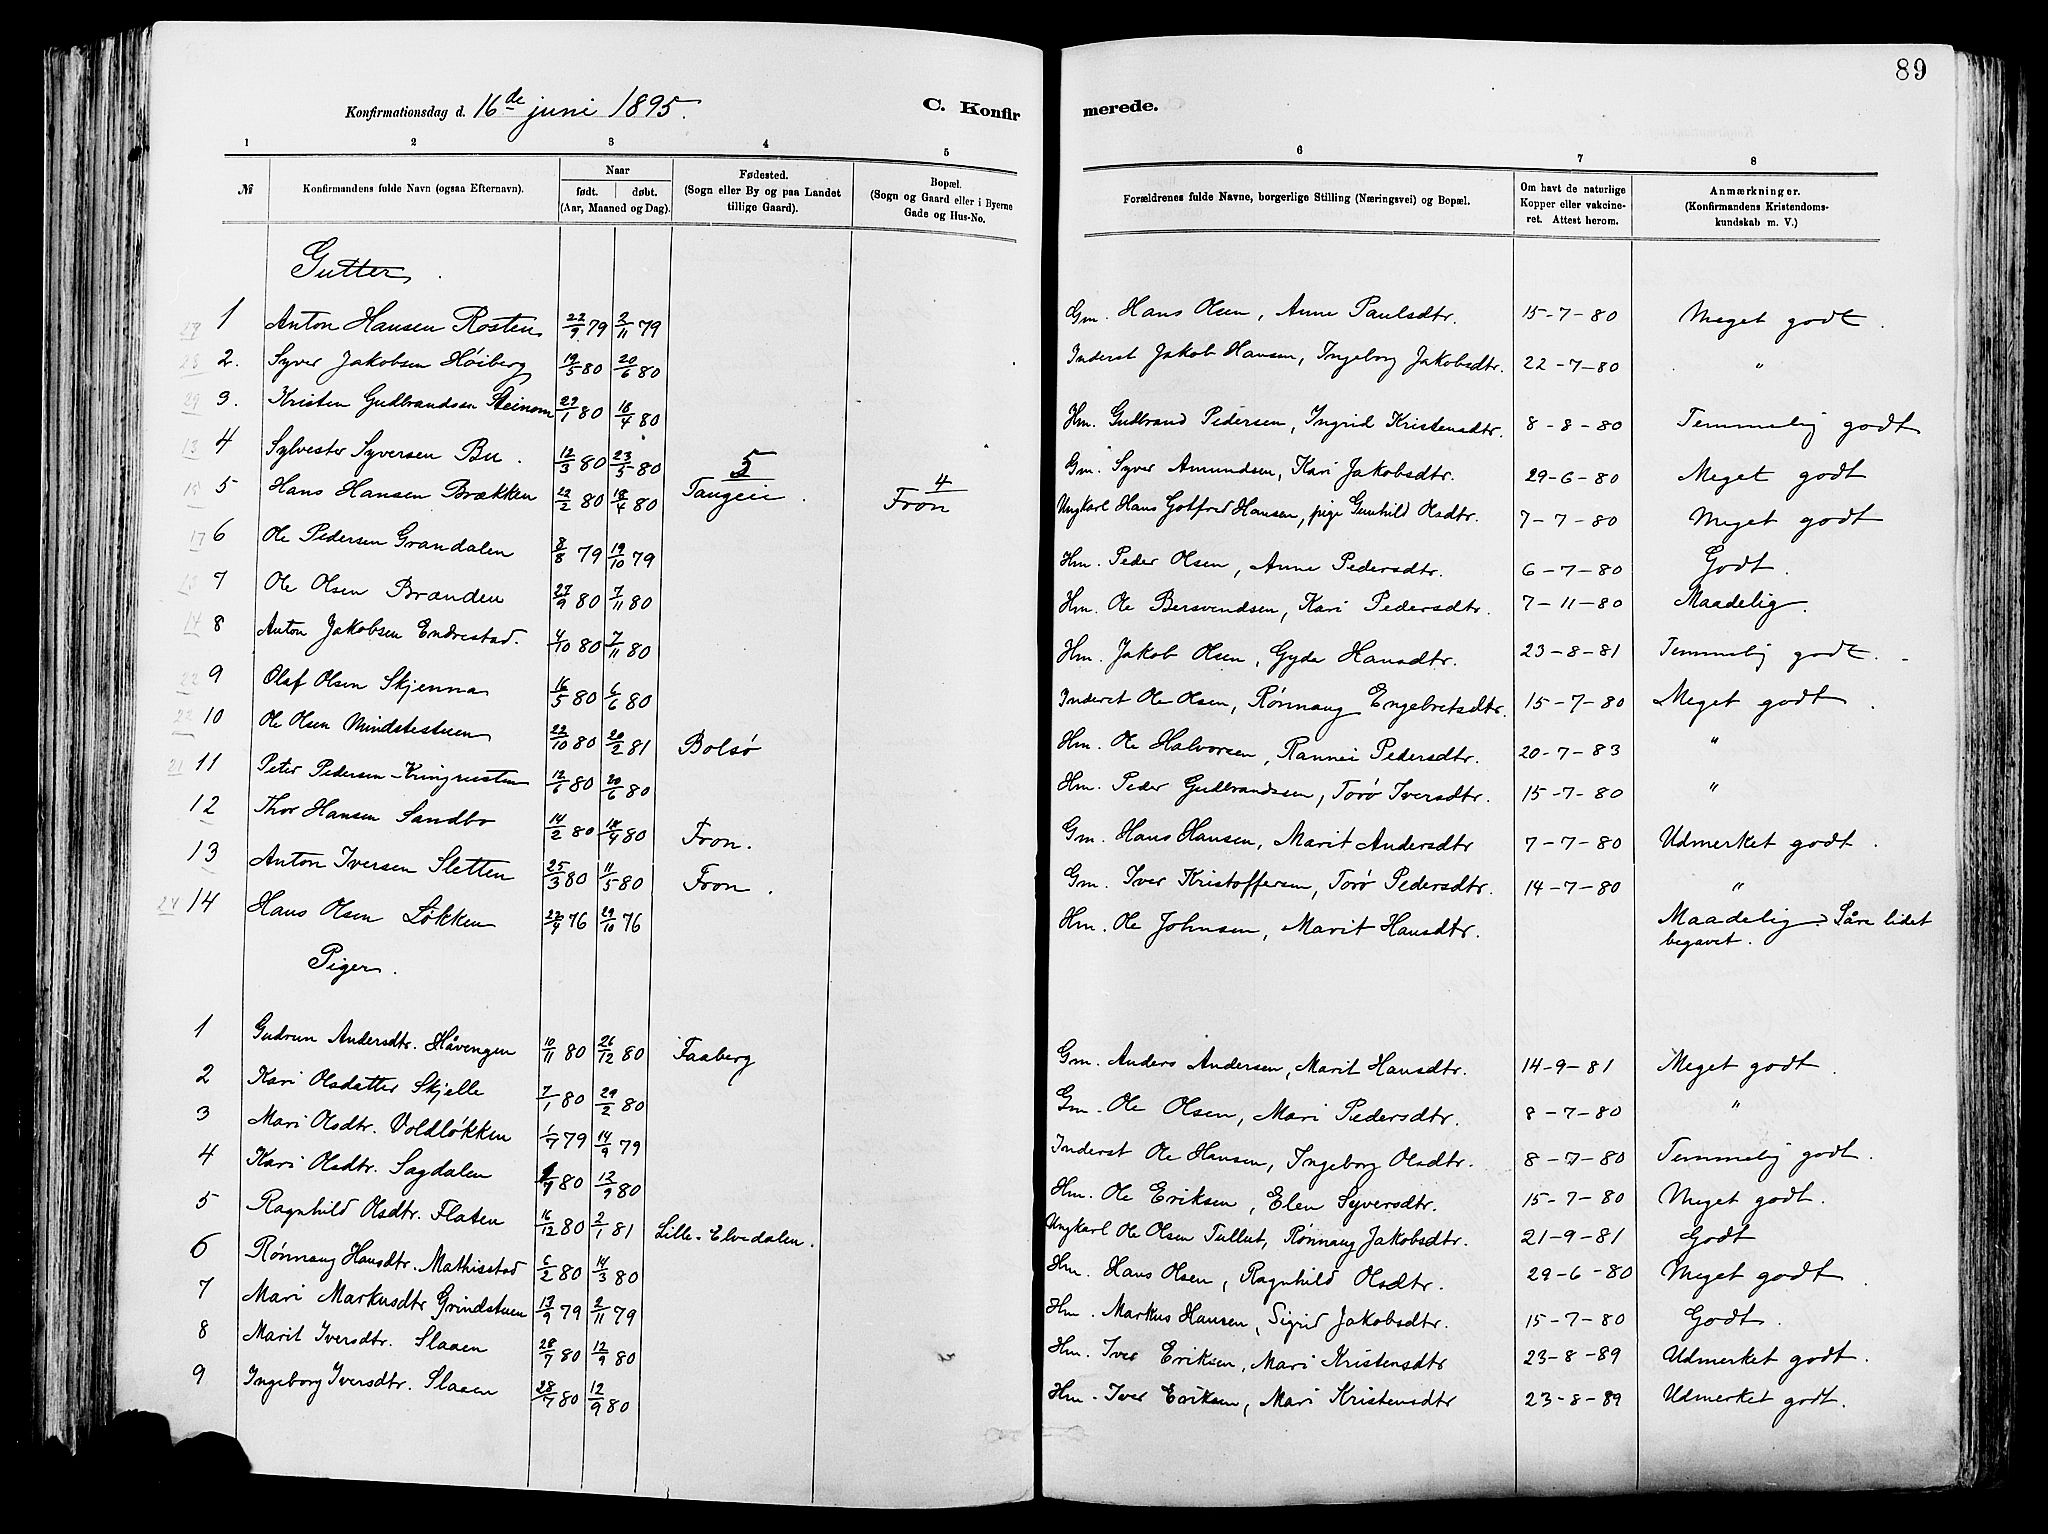 89
Konfirmationsdag d. 16de juni 1895.
C. Konfirmerede.
1 2 3 4 5 6 7 8
№ Konfirmandens fulde Navn (ogsaa Efternavn). Naar født. døbt. (Aar, Maaned og Dag). Fødested. (Sogn eller By og paa Landet tillige Gaard). Bopæl. (Sogn og Gaard eller i Byerne Gade og Hus-No. Forældrenes fulde Navne, borgerlige Stilling (Næringsvei) og Bopæl. Om havt de naturlige Kopper eller vakcineret. Attest herom. Anmærkninger. (Konfirmandens Kristendomskundskab m. V.)
Gutter.
1 Anton Hansen Rosten 22/9 79 2/11 79 Gm. Hans Olsen, Anne Paulsdtr. 15-7-80 Meget godt.
2. Syver Jakobsen Høiberg 19/5 80 20/6 80 Inderst Jakob Hansen, Ingeborg Jakobsdtr. 22-7-80 "
3. Kristen Gudbrandsen Steinom 29/1 80 18/4 80 Hm. Gudbrand Pedersen, Ingrid Kristensdtr. 8-8-80 Temmelig godt
4 Sylvester Syversen Bu. 12/3 80 23/5 80 Gm. Syver Amundsen, Kari Jakobsdtr. 29-6-80 Meget godt
5 Hans Hansen Brækken 22/2 80 18/4 80 5 Tangeii. 4 Fron Ungkarl Hans Gotfred Hansen, pige Gunhild Olsdtr. 7-7-80 Meget godt
6 Ole Pedersen Grandalen 8/8 79 19/10 79 Hm. Peder Olsen, Anne Pedersdtr. 6-7-80 Godt.
7 Ole Olsen Brænden 27/9 80 7/11 80 Hm. Ole Bersvendsen, Kari Pedersdtr. 7-11-80 Maadelig.
8 Anton Jakobsen Endrestad. 4/10 80 7/11 80 Hm. Jakob Olsen, Gyda Hansdtr. 23-8-81 Temmelig godt.
9 Olaf Olsen Skjenna 16/5 80 6/6 80 Inderst Ole Olsen, Rønnaug Engebretsdtr. 15-7-80 Meget godt.
10 Ole Olsen Mindstestuen 22/10 80 20/2 81 Bolsø Hm. Ole Halvorsen, Rannei Pedersdtr. 20-7-83 "
11 Peter Pedersen Kringsusten 12/6 80 20/6 80 Hm. Peder Gudbrandsen, Torø Iversdtr. 15-7-80 "
12 Thor Hansen Sandbo 14/2 80 18/4 80 Fron. Gm. Hans Hansen, Marit Andersdtr 7-7-80 Udmerket godt.
13 Anton Iversen Sletten 25/3 80 11/5 80 Fron. Gm. Iver Kristoffersen, Torø Pedersdtr. 14-7-80 "
14 Hans Olsen Løkken 22/9 76 29/10 76 Hm. Ole Johnsen, Marit Hansdtr. Maadelig. Såre lidet
begavet.
Piger.
1 Gudrun Andersdtr. Håvengen 10/11 80 26/12 80 Faaberg Gm. Anders Andersen, Marit Hansdtr. 14-9-81 Meget godt.
2 Kari Olsdatter Skjelle 7/1 80 29/2 80 Gm. Ole Olsen, Mari Pedersdtr. 8-7-80 "
3 Mari Olsdtr. Voldløkken 1/7 79 14/9 79 Inderst Ole Hansen, Ingeborg Olsdtr. 8-7-80 Temmelig godt.
4 Kari Olsdtr. Sagdalen 1/7 80 12/9 80 Hm. Ole Eriksen, Elen Syversdtr. 15-7-80 Meget godt.
5 Ragnhild Olsdtr. Flaten 16/12 80 2/1 81 Lille-Elvedalen. Ungkarl Ole Olsen Tullut, Rønnaug Jakobsdtr. 21-9-81 Godt
6 Rønnaug Hansdtr. Mathisstad 6/2 80 14/3 80 Hm. Hans Olsen, Ragnhild Olsdtr. 29-6-80 Meget godt.
7 Mari Markusdtr Grindstuen 13/9 79 2/11 79 Hm. Markus Hansen, Sigrid Jakobsdtr. 15-7-80 Godt.
8 Marit Iversdtr. Slaaen 28/7 80 12/9 80 Hm. Iver Eriksen, Mari Kristensdtr 23-8-89 Udmerket godt.
9 Ingeborg Iversdtr. Slaaen 28/7 80 12/9 80 Hm. Iver Eriksen, Mari Kristensdtr 23-8-89 Udmerket godt.